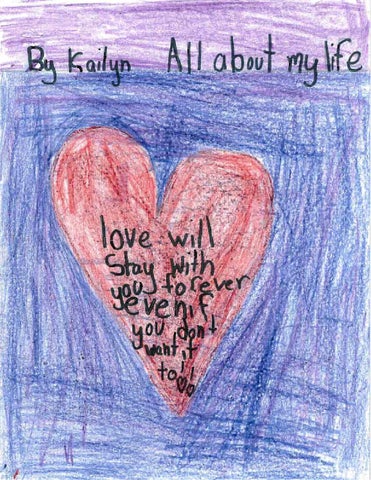 By Kailyn All about my life
love will
Stay with
you forever
even if
you don't
want it
to!